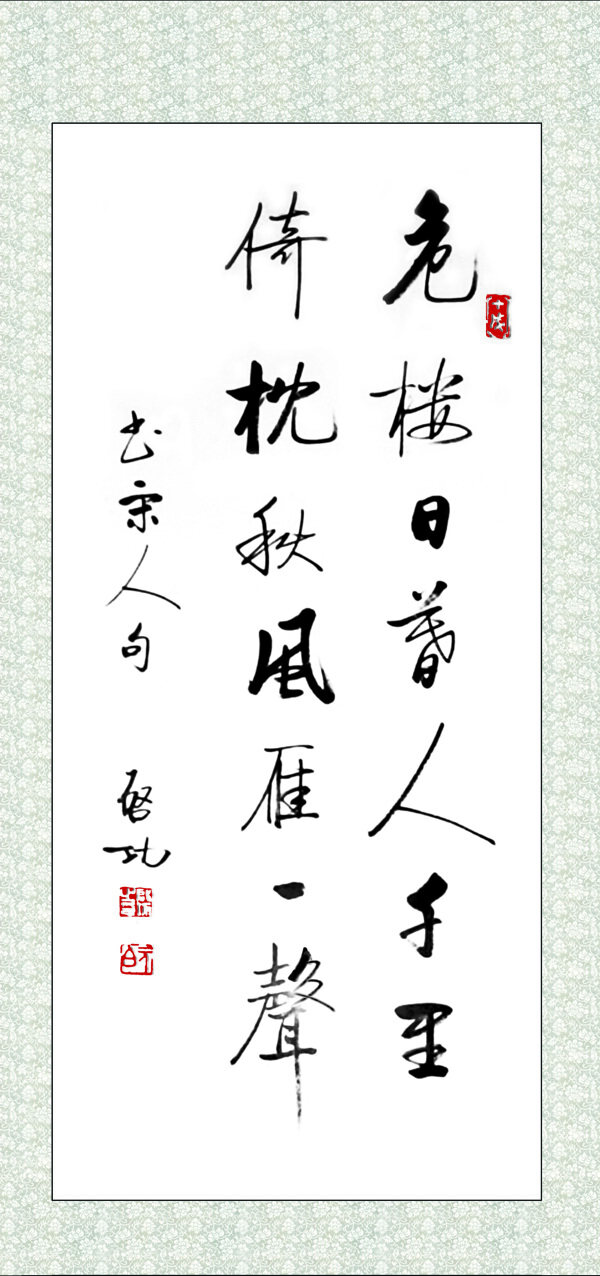 危楼日暮人千里
倚枕秋风雁一聲
书宋人句
启功